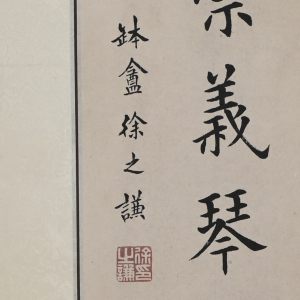 義琴
缽盦徐之謙
徐印之謙